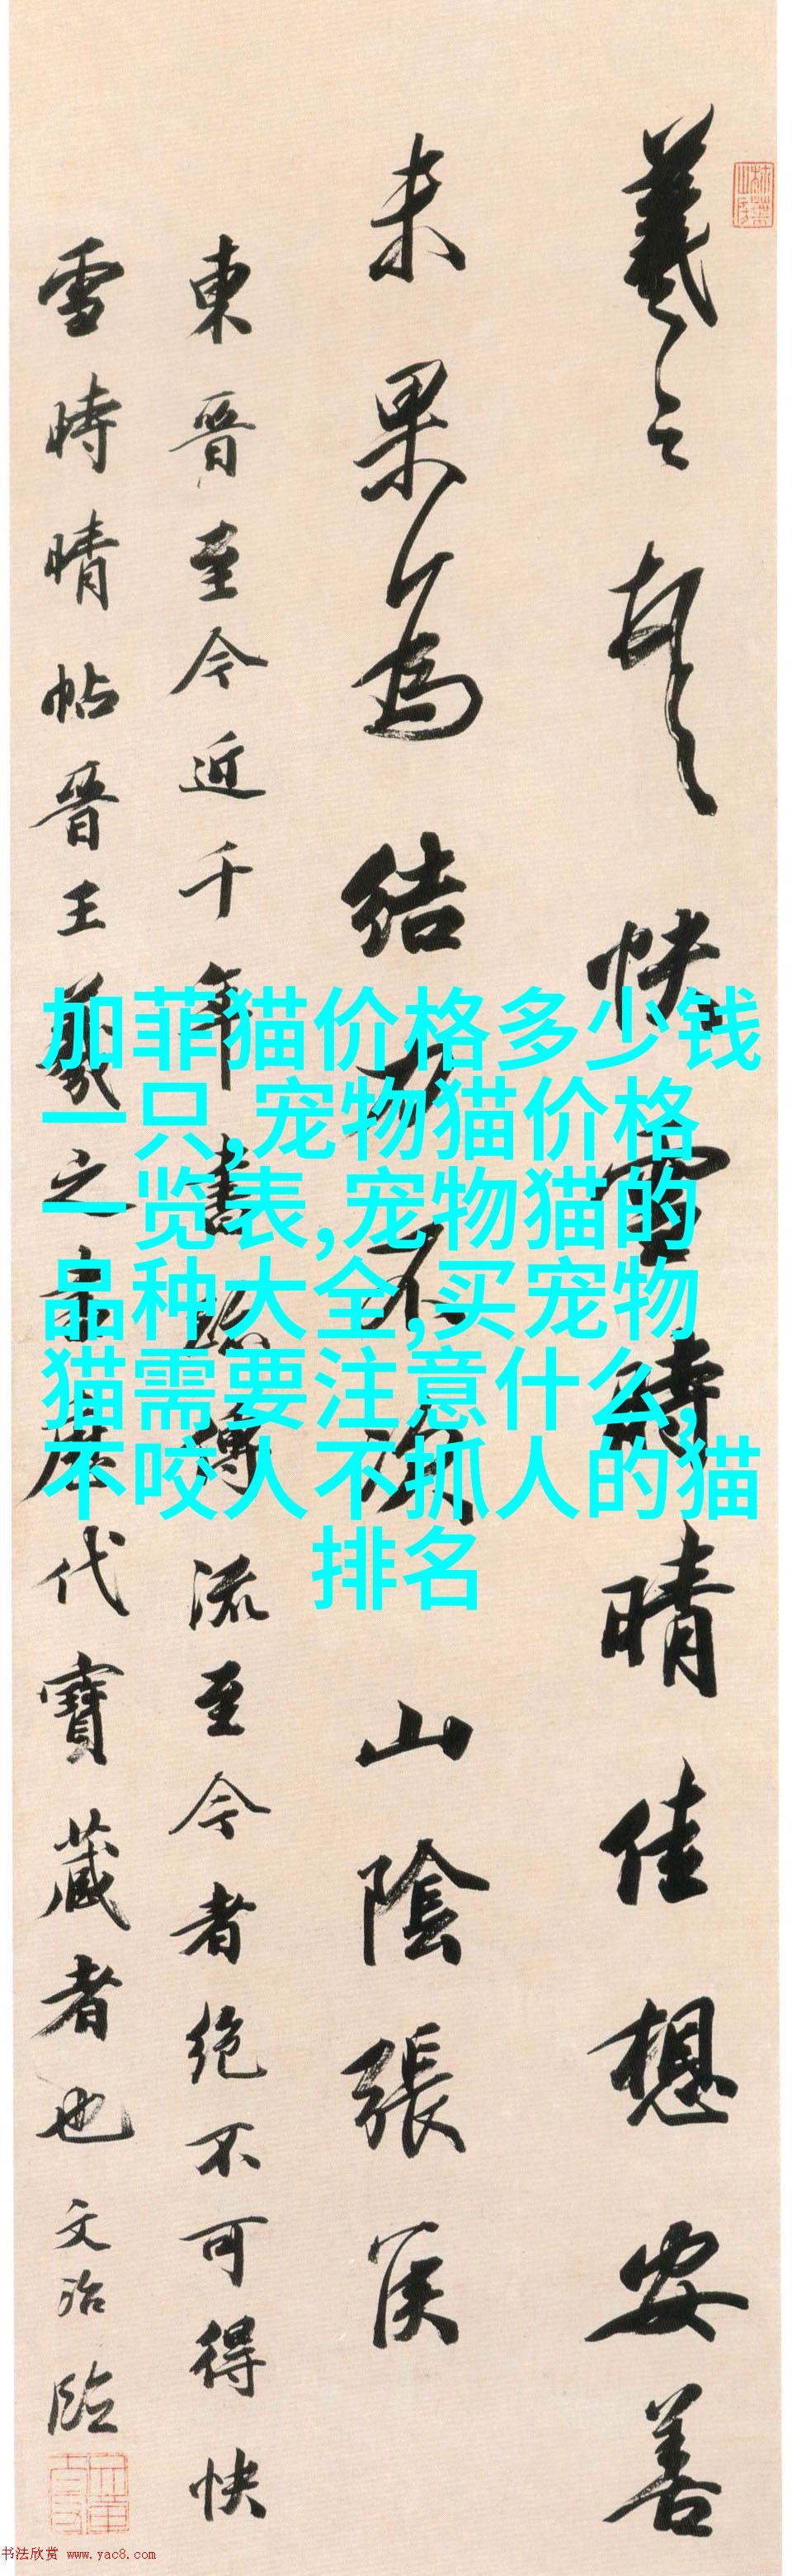 羲之頓首快雪時晴佳想安善
未果為結力不次山陰張侯
東晉至今近千年書跡傳流至今者絕不可得快
雪時晴帖晉王羲之歷代寶藏者也文治臨
加菲猫价格多少钱
一只,宠物猫价格
一览表,宠物猫的
品种大全,买宠物
猫需要注意什么,
不咬人不抓人的猫
排名
书法欣赏 www.yac8.com